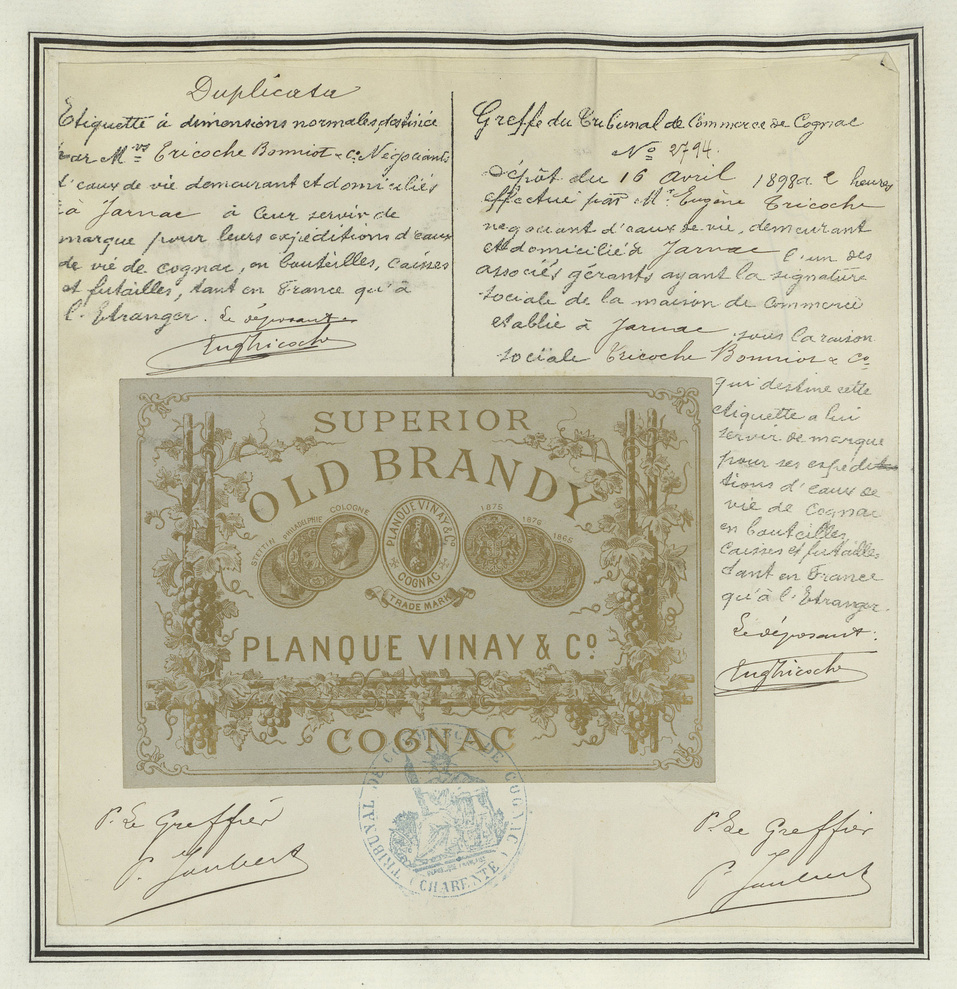 Duplicata
Etiquette à dimensions normales, destinée
par M.rs Tricoche Bonniot & Co Négociants
d'eaux de vie demeurant et domiciliés
à Jarnac à leur servir de
marque pour leurs expéditions d'eaux
de vie de cognac, en bouteilles, caisses
et futailles, tant en France qu'à
l'Etranger. Le déposant
Eug Tricoche
Greffe du Tribunal de Commerce de Cognac
No 2794.
Dépôt du 16 avril 1898 a 2 heures
effectué par Mr Eugène Tricoche
négociant d'eaux de vie, demeurant
et domicilié à Jarnac l'un des
associés gérants ayant la signature
sociale de la maison de commerce
etablie à Jarnac sous la raison
sociale Tricoche Bonniot & Co
qui destine cette
etiquette a lui
servir de marque
pour ses expédi-
tions d'eaux de
vie de Cognac
en bouteilles,
caisses et futailles
tant en France
qu'à l'Etranger.
Le déposant.
Eug Tricoche
SUPERIOR
OLD BRANDY
STETTIN PHILADELPHIE COLOGNE
PLANQUE VINAY & Co
COGNAC
TRADE MARK
1875 1876 1865
PLANQUE VINAY & Co
COGNAC
TRIBUNAL DE COMMERCE DE COGNAC
(CHARENTE)
P. Le Greffier
P. Joubert
P. Le Greffier
P. Joubert